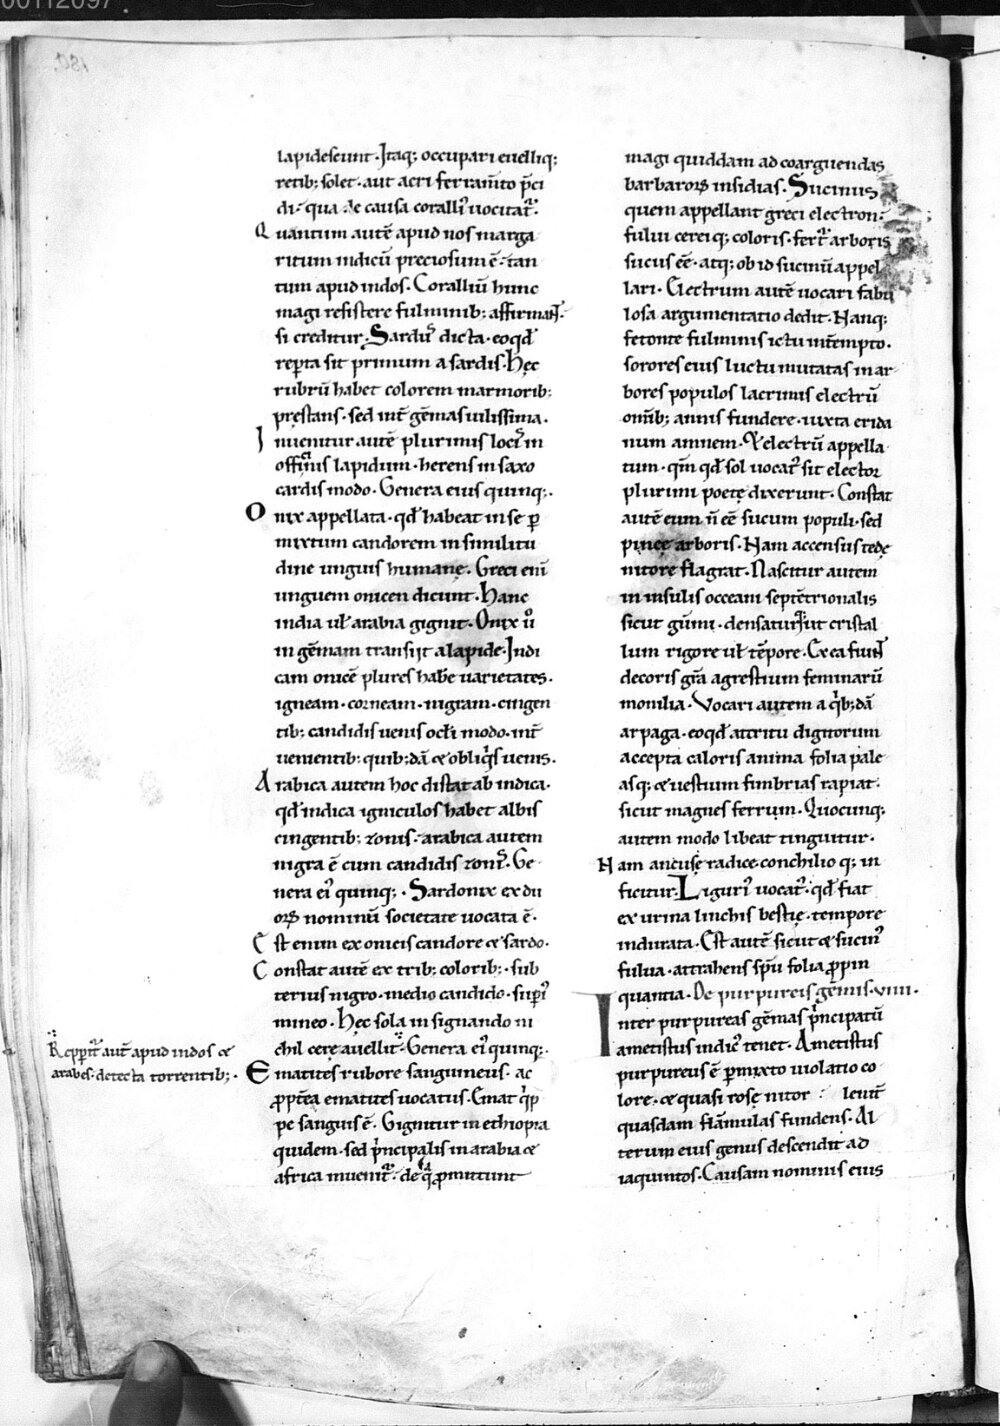 00112097
lapidescunt. Itaq; occupari euelliq;
retib; solet. aut acri ferram̄to p̄ci
di. qua de causa corallī uocitat᷑.
Quantum autē apud nos marga
ritum indicū preciosum ē. tan
tum apud indos. Corallīu hunc
magi resistere fulminib; affirmaꝰt.
si creditur. Sardiꝰ dicta. eoqđ
reperta sit primum a sardis. Hęc
rubrū habet colorem marmorib;
pręstans. sed int̄ gēmas uilissima.
Inuenitur autē plurimis locis in
lapidum. herens in saxo
cardis modo. Genera eius quinq;.
Onix appellata. qđ habeat in se ꝑ
mixtum candorem in similitu
dine unguis humanę. Greci eni
unguem onicen dicunt. Hanc
india ul̄ arabia gignit. Onix ů
in gēmam transiit a lapide. Indi
cam onicē plures habēt uarietates.
igneam. corneam. nigram. cingen
tib; candidis uenis ocl̄i modo. int̄
uenientib; quib;dā & obliqͥs uenis.
Arabica autem hoc distat ab indica.
qđ indica igniculos habet albis
cingentib; zonis. arabica autem
nigra ē cum candidis zonis. Ge
nera eiꝰ quinq;. Sardonix ex du
oꝝ nominū societate uocata ē.
Est enim ex onicis candore & sardo.
Constat autē ex trib; colorib;. sub
terius nigro. medio candido. supi
mineo. Hęc sola in signando ni
chil cere auellit. Genera eiꝰ quinq;.
Ematites rubore sanguineus. ac
ꝓpt̄ea ematites uocatus. Emat qͥp
pe sanguis ē. Gignitur in ethiopia
quidem. sed p̄ncipalis in arabia &
africa inuenit᷑. de qͣ ꝓmittunt
Repperit᷑ aut̄ apud indos &
arabes. detecta torrentib;.
magi quiddam ad coarguendas
barbaroꝝ insidias. Sucinus
quem appellant greci electron.
fului cereiq; coloris. fert᷑ arboris
sucus eē. atq; ob id sucinū appel
lari. Electrum autē uocari fabu
losa argumentatio dedit. Nanq;
fetonte fulminis ictu intempto.
sorores eius luctu mutatas in ar
bores populos lacrimis electrū
omīb; annis fundere. iuxta erida
num amnem. & electrū appella
tum. qm̄ qđ sol uocat᷑ sit elector
plurimi poetę dixerunt. Constat
autē eum n̄ eē sucum populi. sed
pineę arboris. Nam accensus tedę
nitore flagrat. Nascitur autem
in insulis occeani septētrionalis
sicut gūmi. densatur ut cristal
lum rigore ul̄ tēpore. Ex ea fiunt
decoris grā agrestium feminarū
monilia. Vocari autem a qͥb;dā
arpaga. eoqđ attritu digitorum
accepta caloris anima folia pale
asq; & uestium fimbrias rapiat.
sicut magnes ferrum. Quocunq;
autem modo libeat tinguitur.
Nam ancusę radice conchilio q; in
ficitur. Liguriꝰ uocat᷑. qđ fiat
ex urina linchis bestię. tempore
indurata. Est autē sicut & sucinꝰ
fulua. attrahens sp̄u folia ꝓpin
quantia. De purpureis gēmis. VIIII.
Inter purpureas gēmas p̄ncipatū
ametistus indicꝰ tenet. Ametistus
purpureus ē ꝑmixto uiolatio co
lore. & quasi rosę nitor leuit̄
quasdam flāmulas fundens. Al
terum eius genus descendit ad
iaquintos. Causam nominis eius